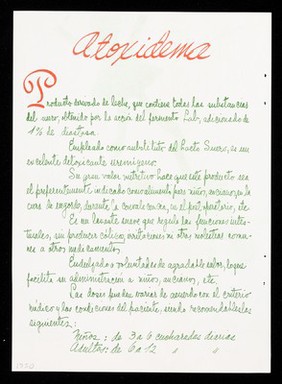 Atoxidema
Producto derivado de leche, que contiene todas las substancias
del suero, obtenido por la acción del fermento Lab, adicionado de
1% de diastasa.
Empleado como substituto del Lacto Suero, es un
excelente detoxicante uremígeno.
Su gran valor nutritivo hace que este producto sea
el preferentemente indicado como alimento para niños, ancianos, en la
cura de engorde, durante la convalescencia, en el postoperatorio, etc.
Es un laxante suave que regula las funciones intes-
tinales, sin producir cólicos, irritaciones ni otras molestias comu-
nes a otros medicamentos.
Endulzado a voluntad es de agradable sabor, lo que
facilita su administración a niños, ancianos, etc.
Las dosis pueden variar de acuerdo con el criterio
médico y las condiciones del paciente, siendo recomendables las
siguientes:
Niños: de 3 a 6 cucharadas diarias
Adultos: de 6 a 12 " "